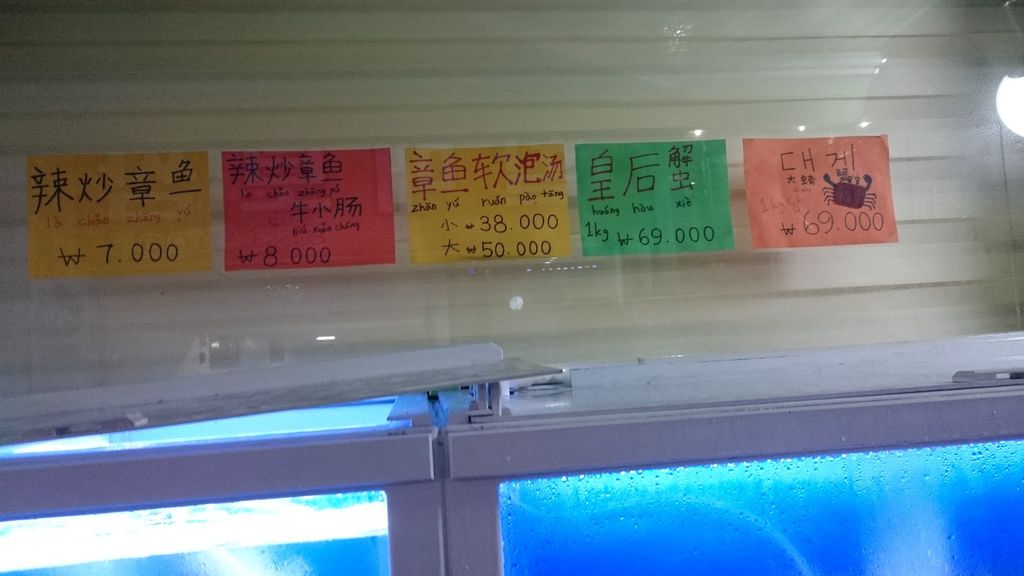 辣炒章鱼
là chǎo zhāng yú
₩ 7.000
辣炒章鱼
là chǎo zhāng yú
牛小肠
niú xiǎo cháng
₩ 8.000
章鱼软泡汤
zhān yú ruǎn pào tāng
小 ₩ 38.000
大 ₩ 50.000
皇后蟹
huáng hòu xiè
1kg ₩ 69.000
대게
大
1kg
₩ 69.000